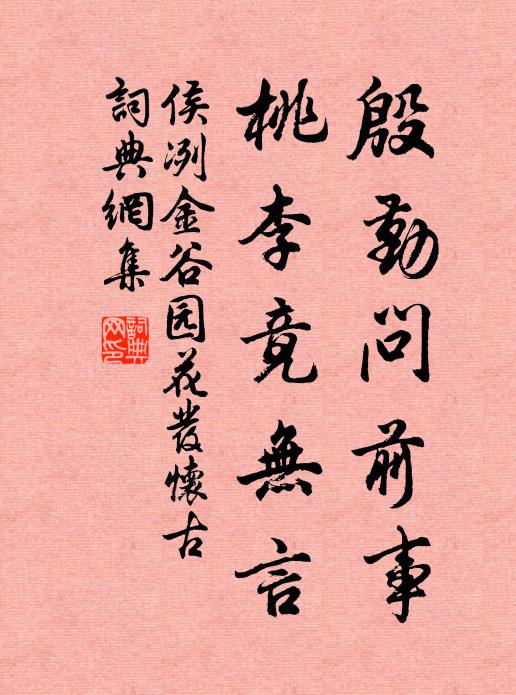 殷勤問前事
桃李竟無言
侯冽金谷园花發懷古
詞典網集
詞典
网印